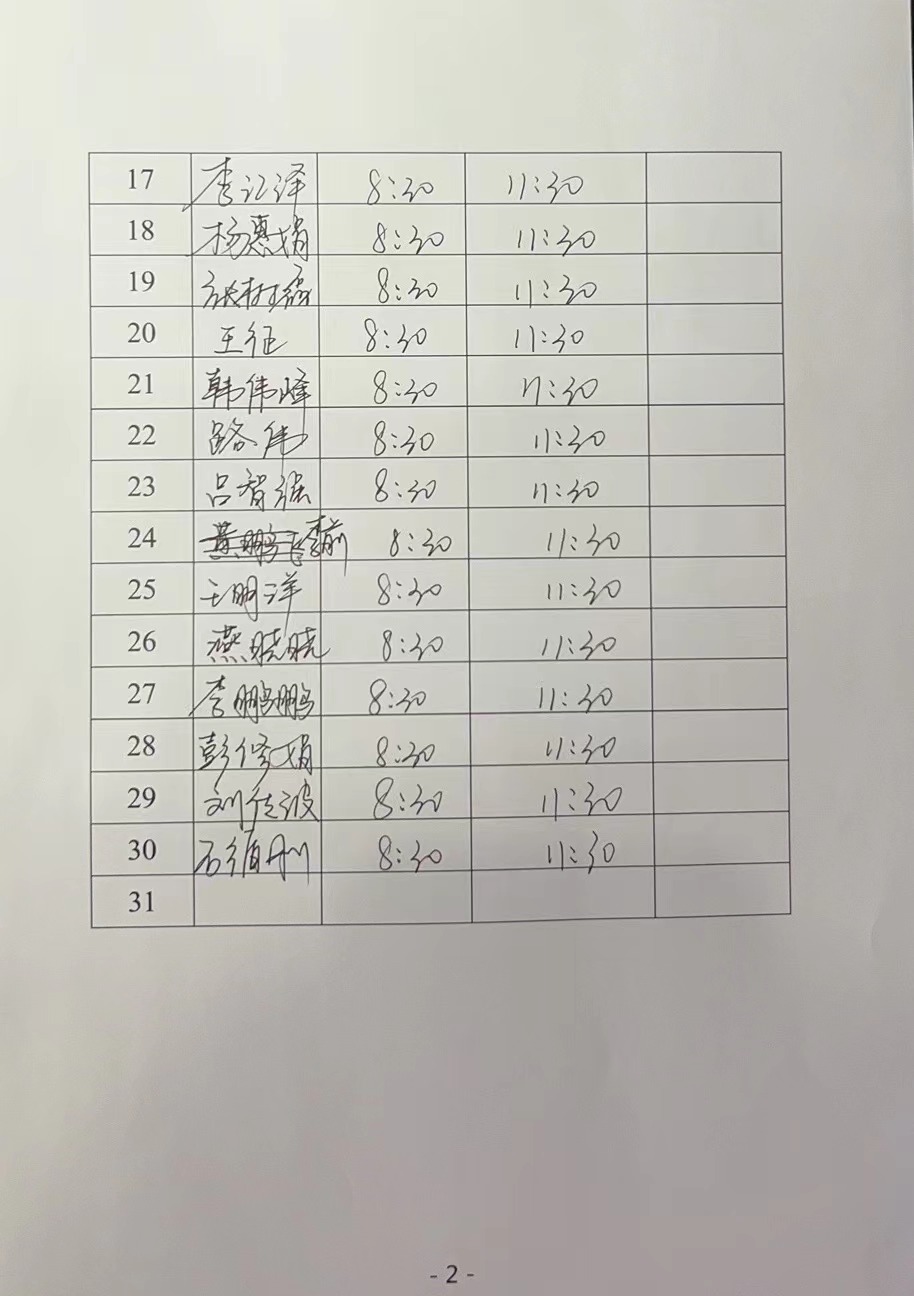 17 李江泽 8:30 11:30
18 杨惠娟 8:30 11:30
19 张树 8:30 11:30
20 王征 8:30 11:30
21 韩伟峰 8:30 11:30
22 路伟 8:30 11:30
23 吕智强 8:30 11:30
24 黄鹏飞 李前 8:30 11:30
25 王明洋 8:30 11:30
26 燕晓晓 8:30 11:30
27 李鹏鹏 8:30 11:30
28 彭修娟 8:30 11:30
29 刘佳波 8:30 11:30
30 石 8:30 11:30
31
- 2 -